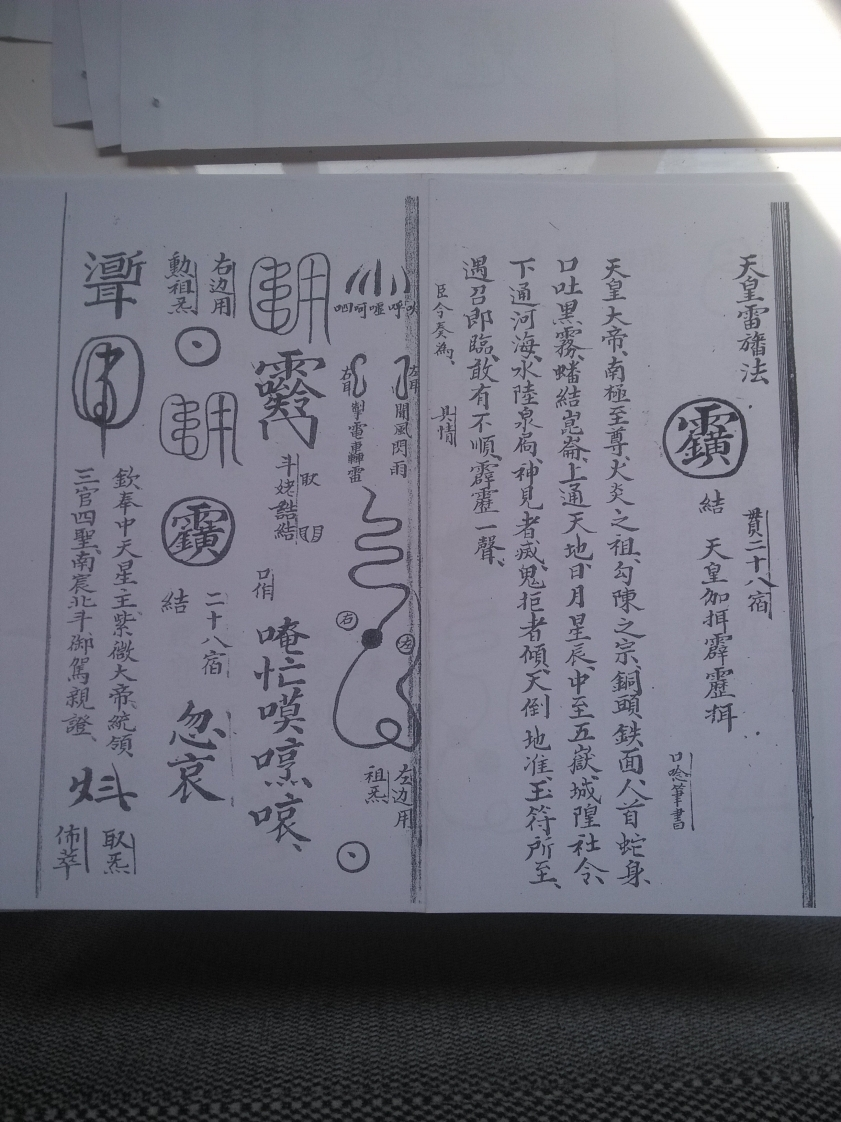 天皇雷旛法
貫二十八宿
結 天皇加持霹靂持
口唸筆書
天皇大帝、南極至尊、火炎之祖、勾陳之宗、銅頭鉄面、人首蛇身、
口吐黑霧、蟠結崑崙、上通天地、日月星辰、中至五嶽、城隍社令、
下通河海、水陸泉扃、神見者滅、鬼拒者傾、天倒地准、玉符所至、
遇召即臨、敢有不順、霹靂一聲、
臣今奏為、 具情
吹呼噓呵呬
左耳 開風閃雨
右耳 掣電轟雷
左
右
左边用
祖炁
取
斗姥誥結
唵忙嘆
右边用
勲祖炁
二十八宿
結
忽哀
欽奉中天星主紫微大帝、統領
三官四聖、南宸北斗、御駕親證、
取炁
佈萃